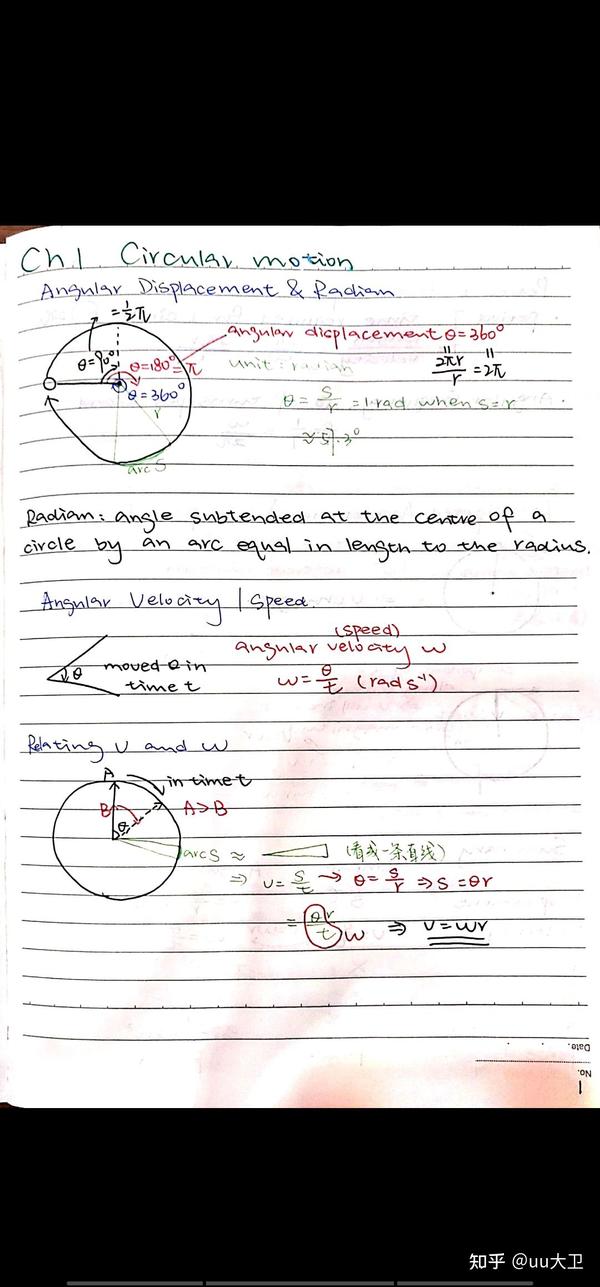 Ch.1 Circular motion
Angular Displacement & Radian
= 1/2 π
θ=90°
θ=180°=π
θ=360°
r
arc S
angular displacement θ=360°
2πr/r = 2π
unit: radian
θ = s/r = 1 rad when s=r
≈57.3°
Radian: angle subtended at the centre of a
circle by an arc equal in length to the radius.
Angular Velocity / Speed
θ
moved θ in
time t
(speed)
angular velocity w
w = θ/t (rad s⁻¹)
Relating v and w
A
in time t
B
A>B
θ
arc S ≈
(看成一条直线)
⇒ v = s/t → θ = s/r ⇒ s = θr
= θr/t w ⇒ v=wr
Date.
No.
1
知乎 @uu大卫